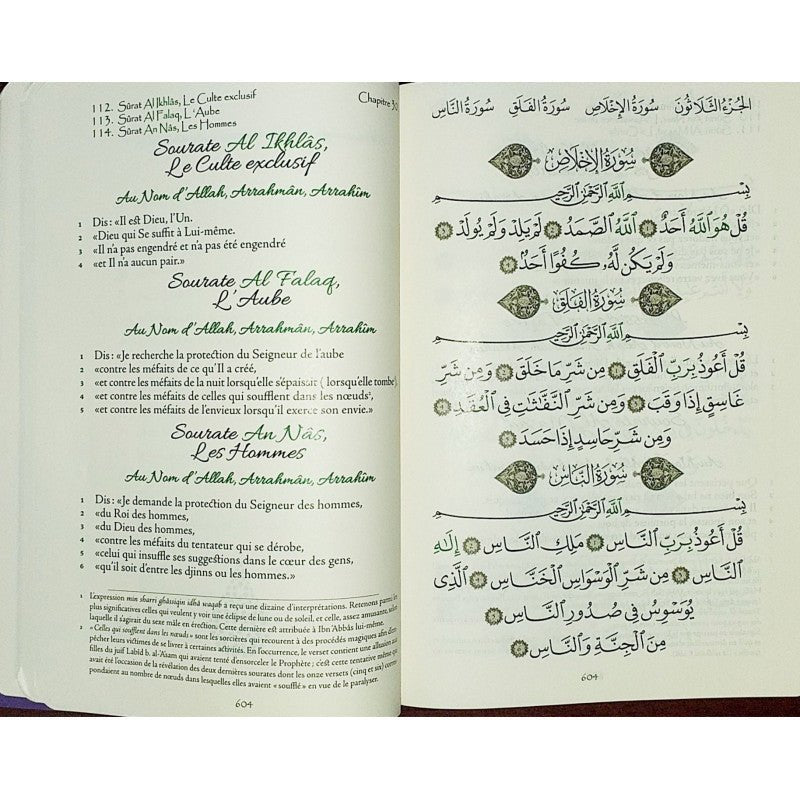 112. Sûrat Al Ikhlâs, Le Culte exclusif
113. Sûrat Al Falaq, L'Aube
114. Sûrat An Nâs, Les Hommes
Chapitre 30
Sourate Al Ikhlâs,
Le Culte exclusif
Au Nom d'Allah, Arrahmân, Arrahîm
1 Dis : «Il est Dieu, l'Un.
2 «Dieu qui Se suffit à Lui-même.
3 «Il n'a pas engendré et n'a pas été engendré
4 «et Il n'a aucun pair.»
Sourate Al Falaq,
L'Aube
Au Nom d'Allah, Arrahmân, Arrahîm
1 Dis : «Je recherche la protection du Seigneur de l'aube
2 «contre les méfaits de ce qu'Il a créé,
3 «et contre les méfaits de la nuit lorsqu'elle s'épaissit ( lorsqu'elle tombe)¹,
4 «et contre les méfaits de celles qui soufflent dans les nœuds²,
5 «et contre les méfaits de l'envieux lorsqu'il exerce son envie.»
Sourate An Nâs,
Les Hommes
Au Nom d'Allah, Arrahmân, Arrahîm
1 Dis : «Je demande la protection du Seigneur des hommes,
2 «du Roi des hommes,
3 «du Dieu des hommes,
4 «contre les méfaits du tentateur qui se dérobe,
5 «celui qui insuffle ses suggestions dans le cœur des gens,
6 «qu'il soit d'entre les djinns ou les hommes.»
1 L'expression min sharri ghâssiqin idhâ waqab a reçu une dizaine d'interprétations. Retenons parmi les
plus significatives celles qui veulent y voir une éclipse de lune ou de soleil, et celle, assez amusante, selon
laquelle il s'agirait du sexe mâle en érection. Cette dernière est attribuée à Ibn 'Abbâs lui-même.
2 «Celles qui soufflent dans les nœuds» sont les sorcières qui recourent à des procédés magiques afin d'em-
pêcher leurs victimes de se livrer à certaines activités. En l'occurrence, le verset contient une allusion aux
filles du juif Labîd b. al-'Asam qui avaient tenté d'ensorceler le Prophète ; c'est cette tentative même qui
avait été l'occasion de la révélation des deux dernières sourates dont les onze versets (cinq et six) corres-
pondaient au nombre de nœuds dans lesquelles elles avaient « soufflé » en vue de le paralyser.
604
الجُزْءُ الثَّلَاثُونَ سُورَةُ الإِخْلَاصِ سُورَةُ الفَلَقِ سُورَةُ النَّاسِ
سُورَةُ الإِخْلَاصِ
بِسْمِ اللَّهِ الرَّحْمَٰنِ الرَّحِيمِ
قُلْ هُوَ ٱللَّهُ أَحَدٌ ١ ٱللَّهُ ٱلصَّمَدُ ٢ لَمْ يَلِدْ وَلَمْ يُولَدْ ٣
وَلَمْ يَكُن لَّهُۥ كُفُوًا أَحَدٌۢ ٤
سُورَةُ الفَلَقِ
بِسْمِ اللَّهِ الرَّحْمَٰنِ الرَّحِيمِ
قُلْ أَعُوذُ بِرَبِّ ٱلْفَلَقِ ١ مِن شَرِّ مَا خَلَقَ ٢ وَمِن شَرِّ
غَاسِقٍ إِذَا وَقَبَ ٣ وَمِن شَرِّ ٱلنَّفَّٰثَٰتِ فِى ٱلْعُقَدِ ٤
وَمِن شَرِّ حَاسِدٍ إِذَا حَسَدَ ٥
سُورَةُ النَّاسِ
بِسْمِ اللَّهِ الرَّحْمَٰنِ الرَّحِيمِ
قُلْ أَعُوذُ بِرَبِّ ٱلنَّاسِ ١ مَلِكِ ٱلنَّاسِ ٢ إِلَٰهِ
ٱلنَّاسِ ٣ مِن شَرِّ ٱلْوَسْوَاسِ ٱلْخَنَّاسِ ٤ ٱلَّذِى
يُوَسْوِسُ فِى صُدُورِ ٱلنَّاسِ ٥
مِنَ ٱلْجِنَّةِ وَٱلنَّاسِ ٦
604